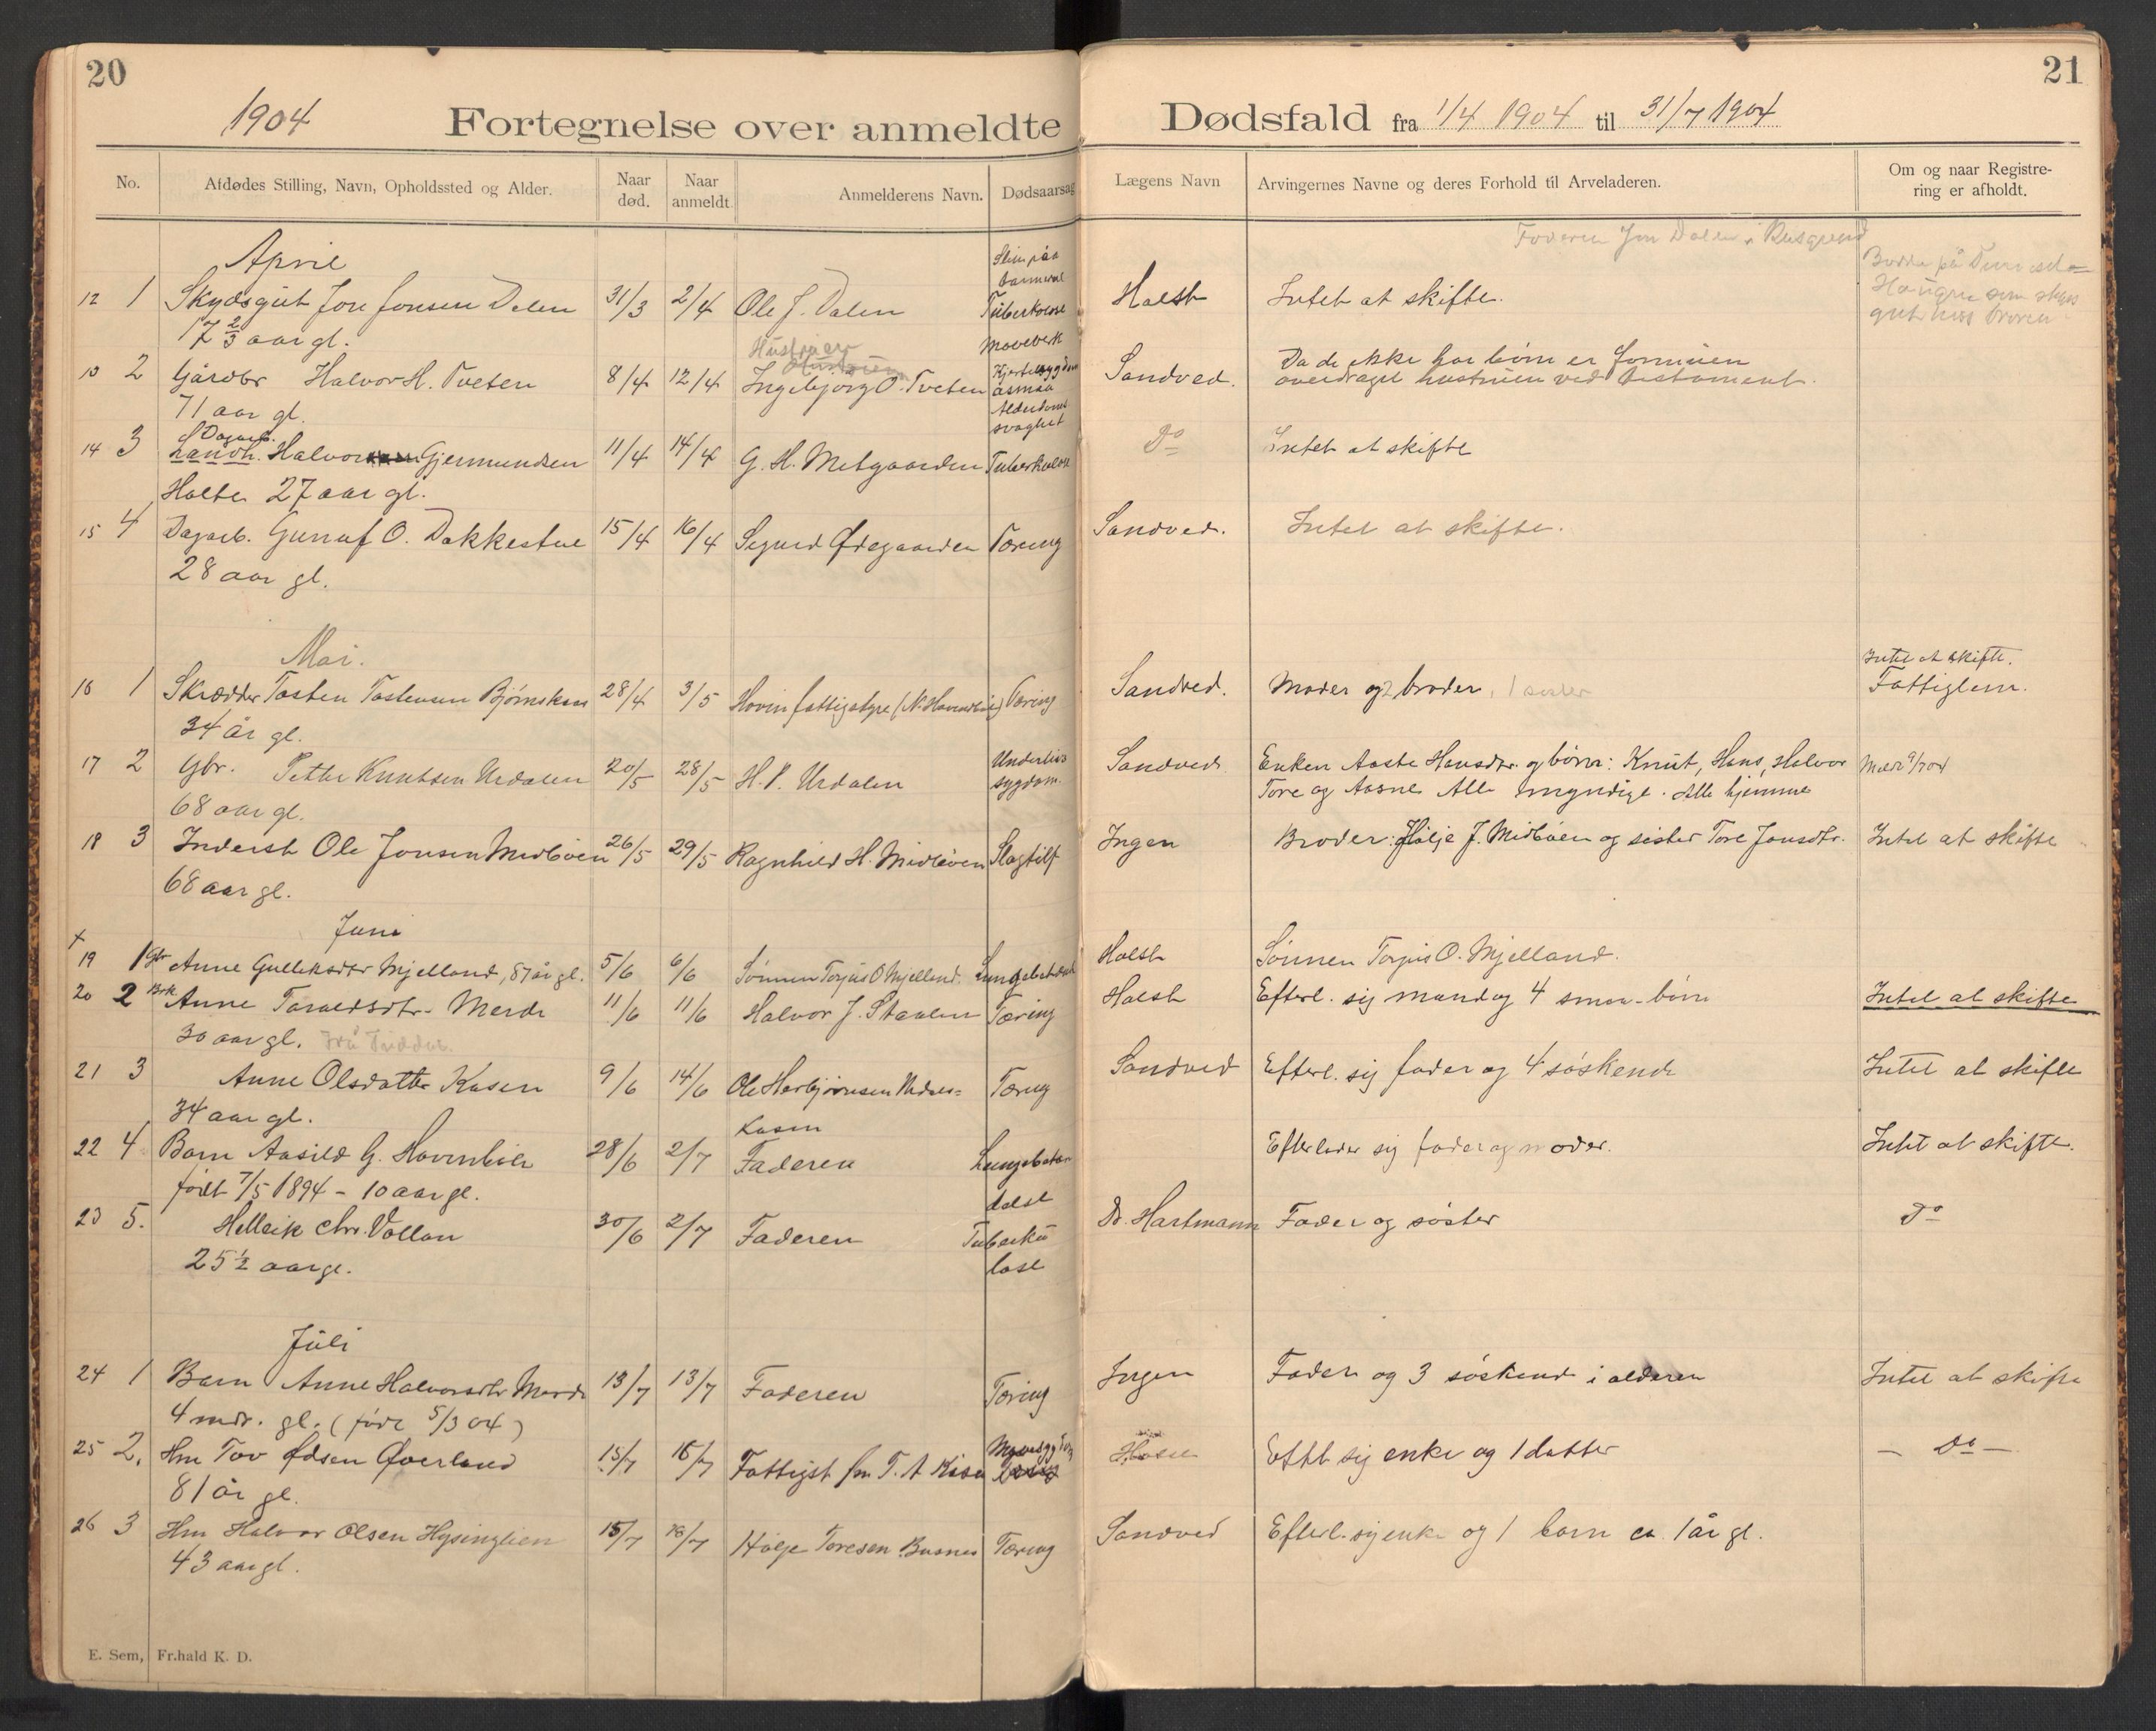 20
1904
Fortegnelse over anmeldte
No.
Afdødes Stilling, Navn, Opholdssted og Alder.
Naar død.
Naar anmeldt.
Anmelderens Navn.
Dødsaarsag
April
12 1 Skydsgut Jore Jonsen Dalen 31/3 2/4 Ole J. Dalen Tuberkulose
17 2/3 aar gl.
Maveverk
Hustruen
13 2 Gårdbr Halvor H. Tveten 8/4 12/4 Ingebjørg O. Tveten Hjertesygdom
asmaa
71 aar gl.
Alderdoms
svaghet
Dagarb.
14 3 Landh. Halvor Gjermundsen 11/4 14/4 G. H. Metgaarden Tuberkulose
Holte 27 aar gl.
15 4 Dagarb. Gunuf O. Dakkestue 15/4 16/4 Sigurd Ødegaarden Tæring
28 aar gl.
Mai.
16 1 Skrædder Tosten Tostensen Bjørnskaas 28/4 3/5 Hovin fattigstyre Tæring
34 år gl.
17 2 Gbr. Petter Knutsen Urdalen 20/5 28/5 H. P. Urdalen Underlivs
sygdom.
68 aar gl.
18 3 Inderst Ole Jonsen Midbøen 26/5 29/5 Ragnhild H. Midbøen Slagtilf
68 aar gl.
Juni
x
19 1 Gbr Anne Gulleksdtr Mjelland, 87 år gl. 5/6 6/6 Sønnen Torjus O Mjelland. Lungebet
20 2 Anne Taraldsdtr. Merdr 11/6 11/6 Halvor J. Staalen Tæring
30 aar gl.
21 3 Anne Olsdatter Kasen 9/6 14/6 Ole Herbjørnsen Tæring
34 aar gl.
Kasen
22 4 Barn Aasild G. Hovinbøle 28/6 2/7 Faderen Lungebetæn
delse
født 7/5 1894 - 10 aar gl.
23 5. Helleik Chr. Vollan 30/6 2/7 Faderen Tuberku
lose
25 1/2 aar gl.
Juli
24 1 Barn Anne Halvorsdtr Merdr 13/7 13/7 Faderen Tæring
4 mdr. gl. (født 5/3 04)
25 2. Hm Tov Odsen Øverland 15/7 16/7 Fattigst fm T. A Kasa Mavesygdom
81 år gl.
26 3 Hm Halvor Olsen Hysinglien 15/7 16/7 Hølje Toresen Busnes Tæring
43 aar gl.
E. Sem, Fr.hald K. D.
21
Dødsfald fra 1/4 1904 til 31/7 1904
Lægens Navn
Arvingernes Navne og deres Forhold til Arveladeren.
Om og naar Registrering er afholdt.
Faderen Jon Dalen i Rusgrend
Holst Intet at skifte.
Sandved. Da de ikke har børn er formuen
overdraget hustruen ved testament.
Do Intet at skifte
Sandved. Intet at skifte.
Intet at skifte.
Sandved. Moder og 2 brødre, 1 søster Fattiglem.
Sandved. Enken Aaste Hansdtr og børn: Knut, Hans, Halvor
Tore og Aasne Alle myndige. Alle hjemme
Ingen Broder: Hølje J. Midbøen og søster Tore Jonsdtr. Intet at skifte
Holst Sønnen Torjus O. Mjelland.
Holst Efterl. sig mand og 4 smaa-børn Intet at skifte
Sandved Efterl. sig fader og 4 søskende Intet at skifte
Efterlader sig fader og moder. Intet at skifte.
Dr. Hartmann Fader og søster Do
Ingen Fader og 3 søskende i alderen Intet at skifte
Holst Eftl sig enke og 1 datter — Do —
Sandved Efterl. sig enke og 1 barn ca. 1 år gl.